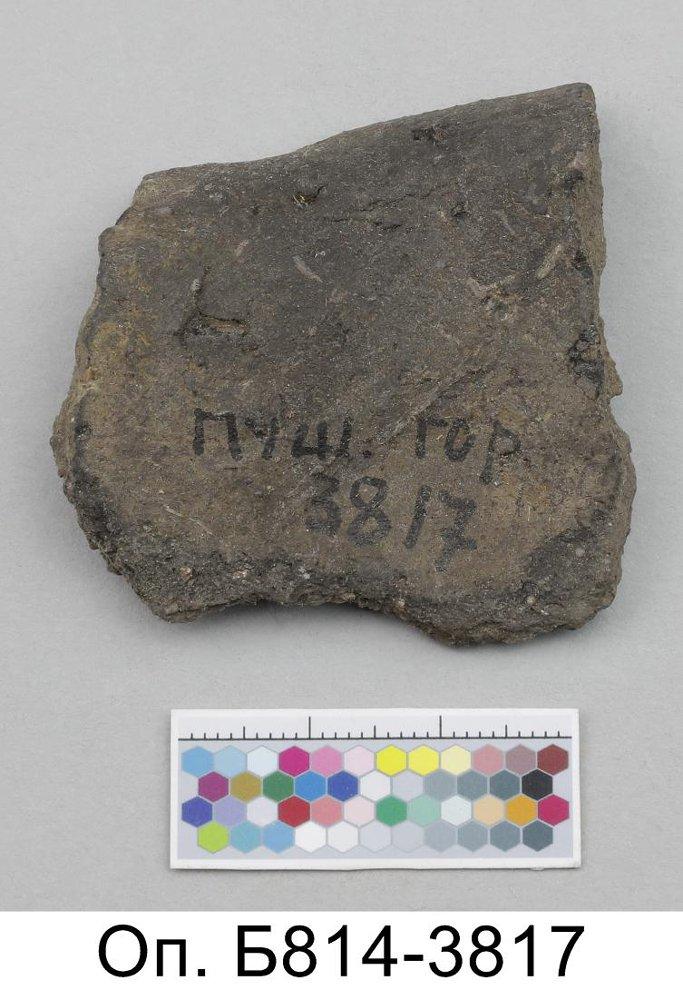 Пуш. гор
3817
Оп. Б814-3817